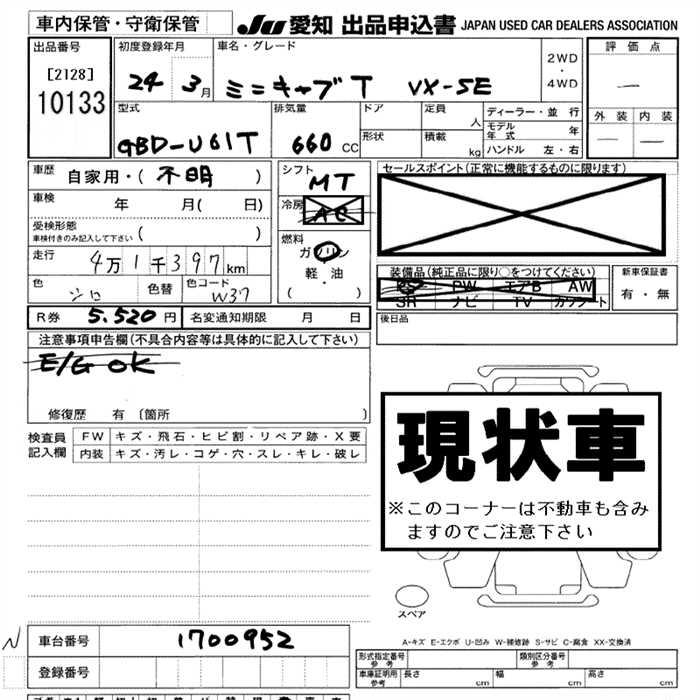 車内保管・守衛保管
JU 愛知 出品申込書 JAPAN USED CAR DEALERS ASSOCIATION
出品番号
[2128]
10133
初度登録年月
24 3月
車名・グレード
ミニキャブT VX-SE
2WD
・
4WD
評価点
—
外装 内装
— —
型式
GBD-U61T
排気量
660 CC
ドア
形状
定員
人
積載
kg
ディーラー・並行
モデル年式 年
ハンドル 左・右
車歴 自家用・(不明)
車検 年 月(日)
受検形態
車検付きのみ記入して下さい ( )
走行 4万1千397km
色 シロ 色替 色コード W37
シフト MT
冷房 AC
燃料
ガソリン
軽・油
( )
セールスポイント(正常に機能するものに限ります)
装備品(純正品に限り○をつけてください)
PS PW エアB AW
SR ナビ TV カワシート
新車保証書
有・無
R券 5.520円 名変通知期限 月 日
後日品
注意事項申告欄(不具合内容等は具体的に記入して下さい)
E/G OK
修復歴 有 〔箇所 〕
検査員記入欄
FW キズ・飛石・ヒビ割・リペア跡・X要
内装 キズ・汚レ・コゲ・穴・スレ・キレ・破レ
現状車
※このコーナーは不動車も含み
ますのでご注意下さい
スペア
A-キズ E-エクボ U-凹み W-補修跡 S-サビ C-腐食 XX-交換済
N 車台番号 1700952
登録番号
形式指定番号 参考 類別区分番号 参考
車庫証明用 参考 長さ cm 幅 cm 高さ cm